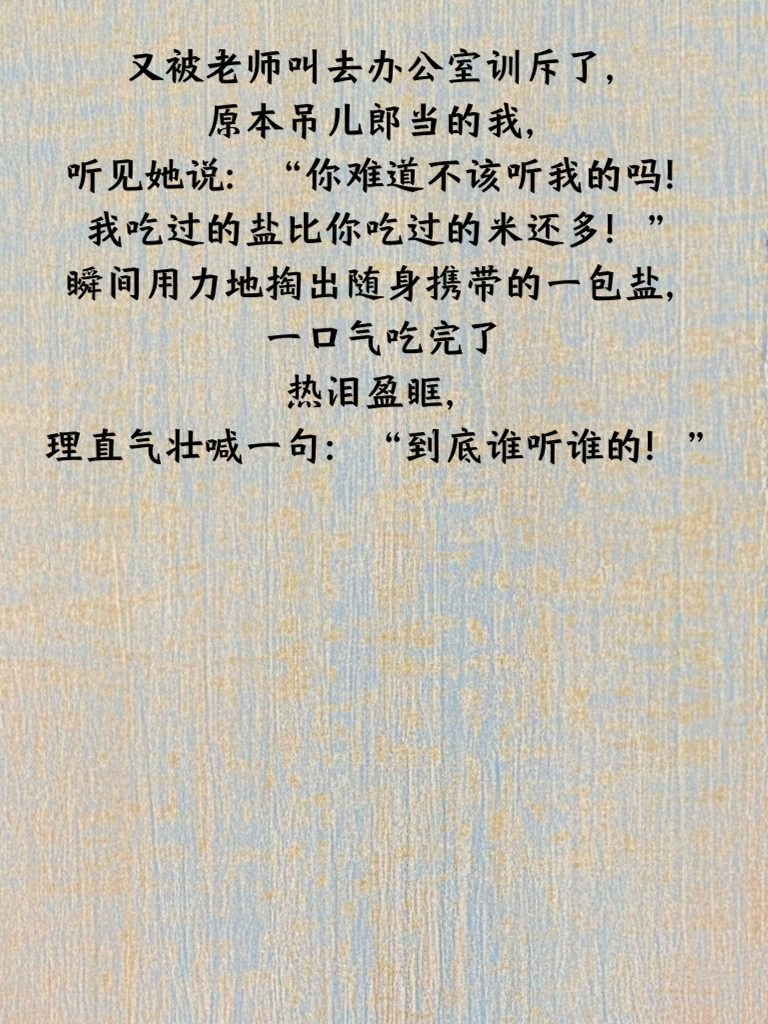 又被老师叫去办公室训斥了，
原本吊儿郎当的我，
听见她说：“你难道不该听我的吗！
我吃过的盐比你吃过的米还多！”
瞬间用力地掏出随身携带的一包盐，
一口气吃完了
热泪盈眶，
理直气壮喊一句：“到底谁听谁的！”